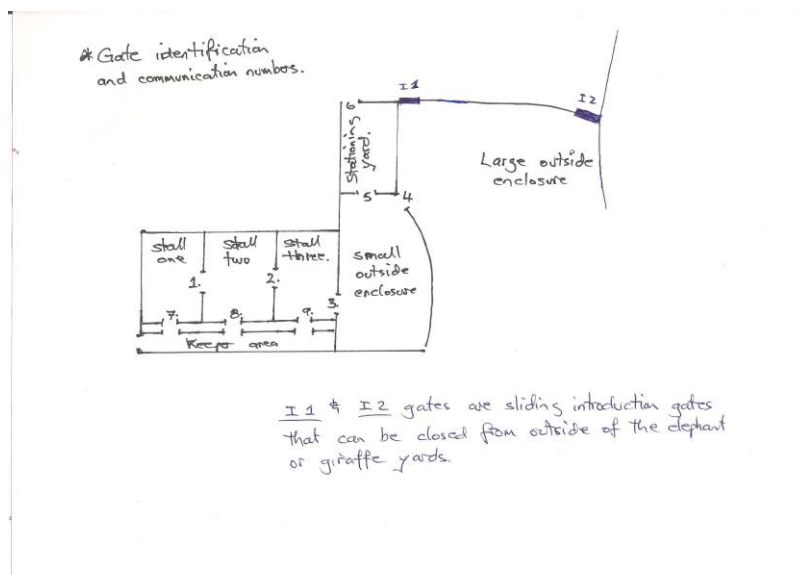 * Gate identification
and communication numbers.
I1
I2
6
Stationing
yard.
Large outside
enclosure
5
4
stall
one
stall
two
stall
three.
small
outside
enclosure
1.
2.
3.
7.
8.
9.
Keeper area
I1 & I2 gates are sliding introduction gates
that can be closed from outside of the elephant
or giraffe yards.